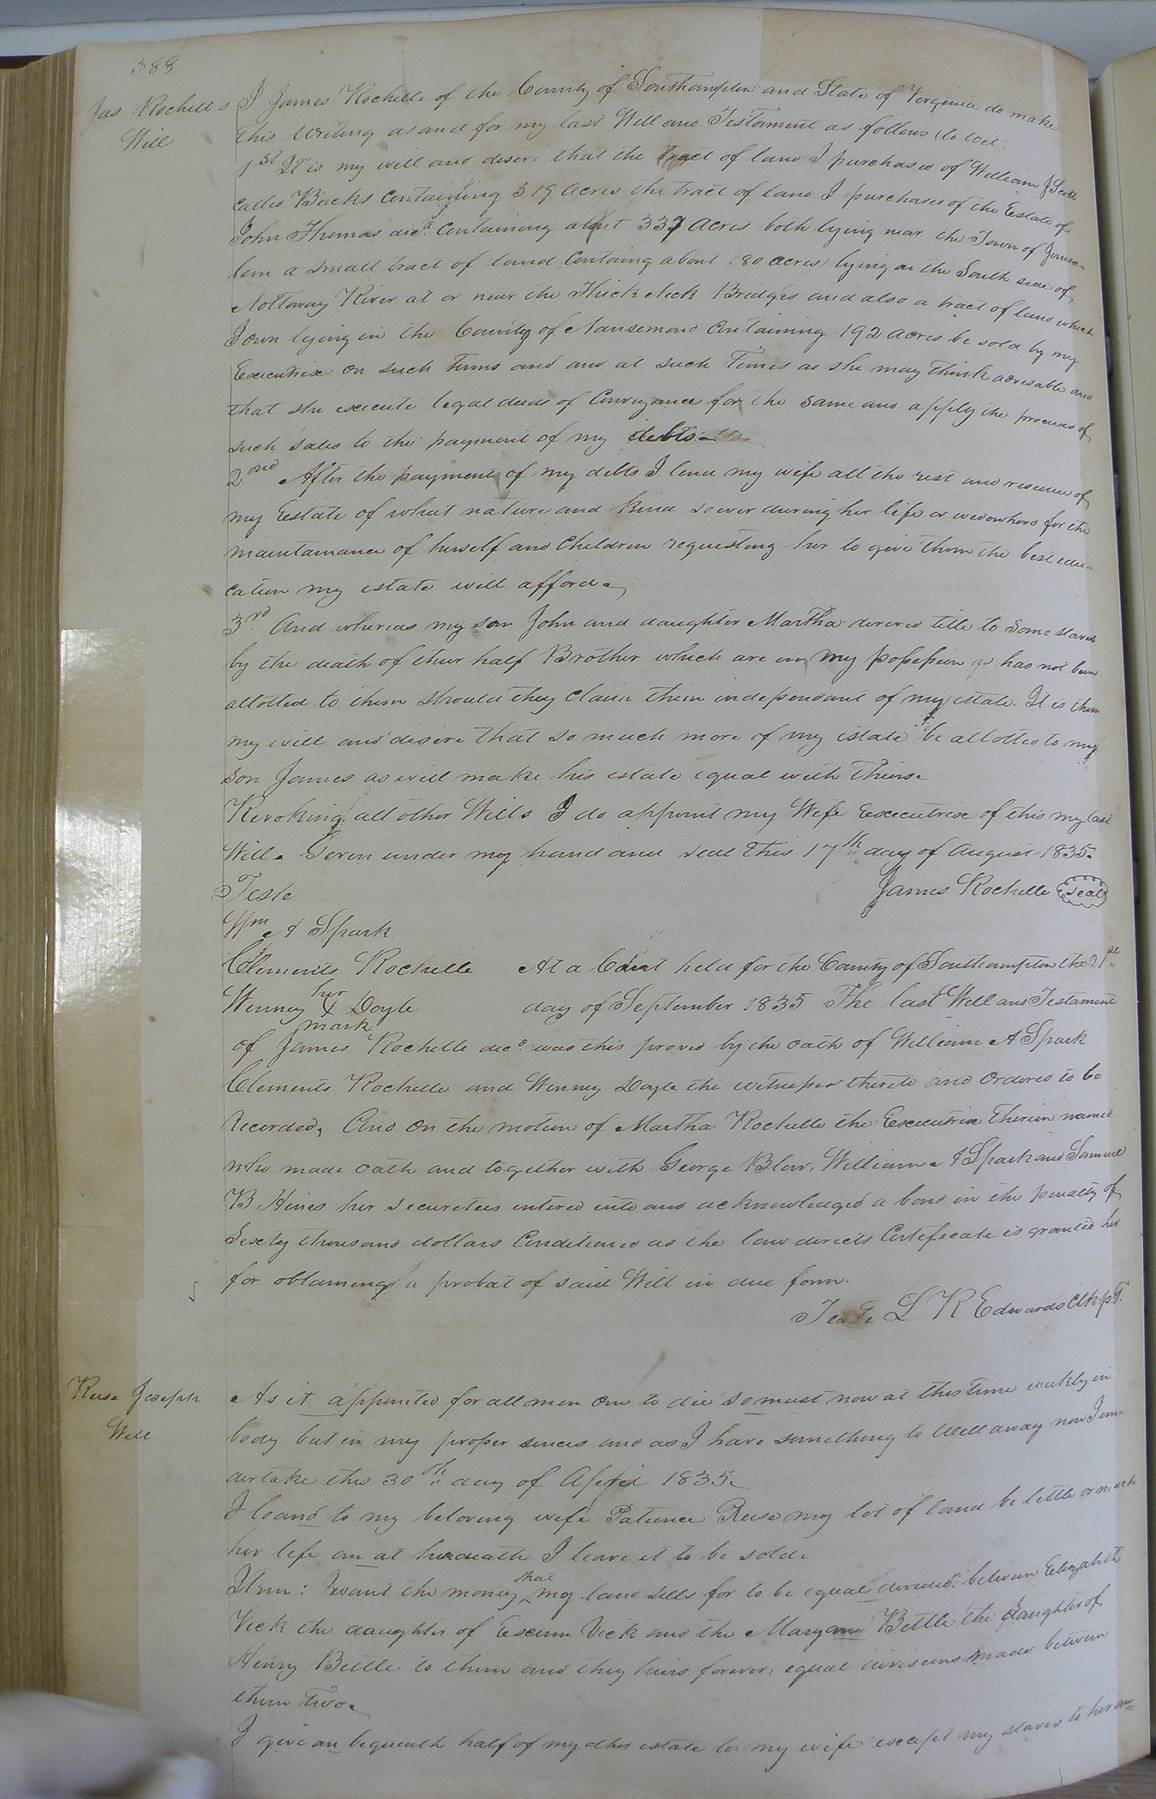 388
Jas Rochelle's
Will
I James Rochelle of the County of Southampton and State of Virginia do make
this writing as and for my last Will and Testament as follows (to wit:
1st It is my will and desire that the tract of land I purchased of William J Scott
called Bucks containing 319 acres the tract of land I purchased of the Estate of
John Thomas decd. containing about 337 acres both lying near the Town of Jerusa-
lem a small tract of land containg about 80 acres lying on the South side of
Nottoway River at or near the Thick Neck Bridges and also a tract of land which
I own lying in the County of Nansemond containing 192 acres be sold by my
Executrix on such terms and and at such Times as she may think advisable and
that she execute legal deeds of Conveyance for the same and apply the proceeds of
such sales to the payment of my debts
2nd After the payment of my debts I lend my wife all the rest and residue of
my Estate of what nature and kind soever during her life or widowhood for the
maintainance of herself and Children requesting her to give them the best edu-
cation my estate will afford
3rd And whereas my son John and daughter Martha derived title to some slaves
by the death of their half Brother which are in my possession has not been
allotted to them should they claim them independant of my estate. It is then
my will and desire that so much more of my estate be allotted to my
son James as will make his estate equal with theirs
Revoking all other Wills I do appoint my Wife Executrix of this my last
Will. Given under my hand and seal this 17th day of August 1835.
Teste James Rochelle (seal)
Wm A Spark
Clements Rochelle At a Court held for the County of Southampton the 21st
Winney her X mark Doyle day of September 1835 The last Will and Testament
of James Rochelle decd was this proved by the oath of William A Spark
Clements Rochelle and Winney Doyle the witnesses thereto and ordered to be
recorded, And on the motion of Martha Rochelle the Executrix therein named
who made oath and together with George Blow, William A Spark and Samuel
B Hines her securities entered into and acknowledged a bond in the penalty of
Sixty thousand dollars Conditioned as the law directs Certificate is granted her
for obtaining a probat of said Will in due form.
Teste L R Edwards Clk p. T.
Reese Joseph
Will
As it appointed for all men one to die so must now at this time weakly in
body but in my proper sences and as I have something to Will away now I un-
dertake this 30th day of April 1835
I leand to my beloving wife Patience Reese my lot of land be little or much
her life an at her death I leave it to be sold.
Itim: I want the money that my land sells for to be equal devided between Elizabeth
Vick the daughter of Exum Vick and the Maryann Bittle the daughter of
Henry Bittle to them and they heirs forever, equal divisions made between
them two
I give an bequeath half of my other estate to my wife except my slaves to her an